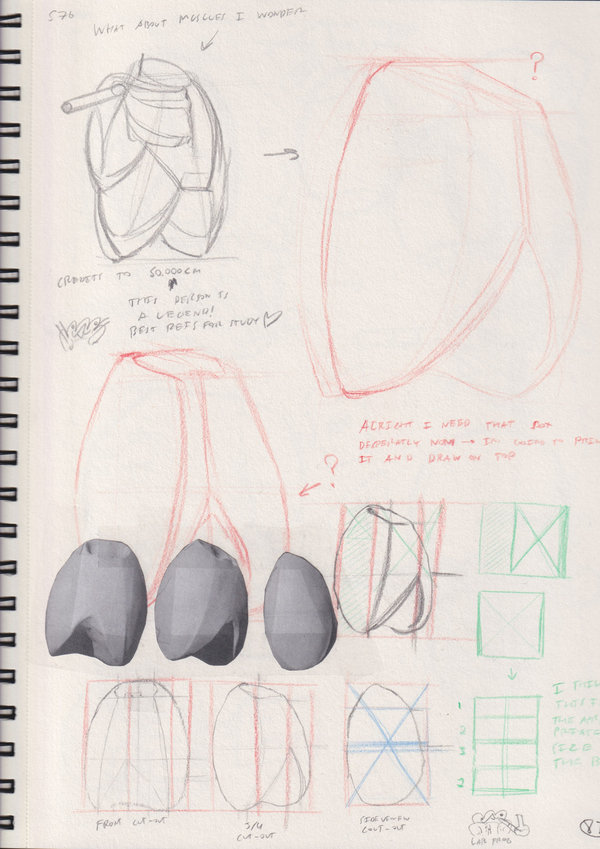 576
WHAT ABOUT MUSCLES I WONDER
?
CREDITS TO 50.000CM
THIS PERSON IS
A LEGEND!
BEST REFS FOR STUDY
ALRIGHT I NEED THAT BOX
DESPERATELY NOW → I'M GOING TO
IT AND DRAW ON TOP
?
I
THIS
SIZE
THE
1
2
3
2
FRONT CUT-OUT
3/4
CUT-OUT
SIDEVIEW
CUT-OUT